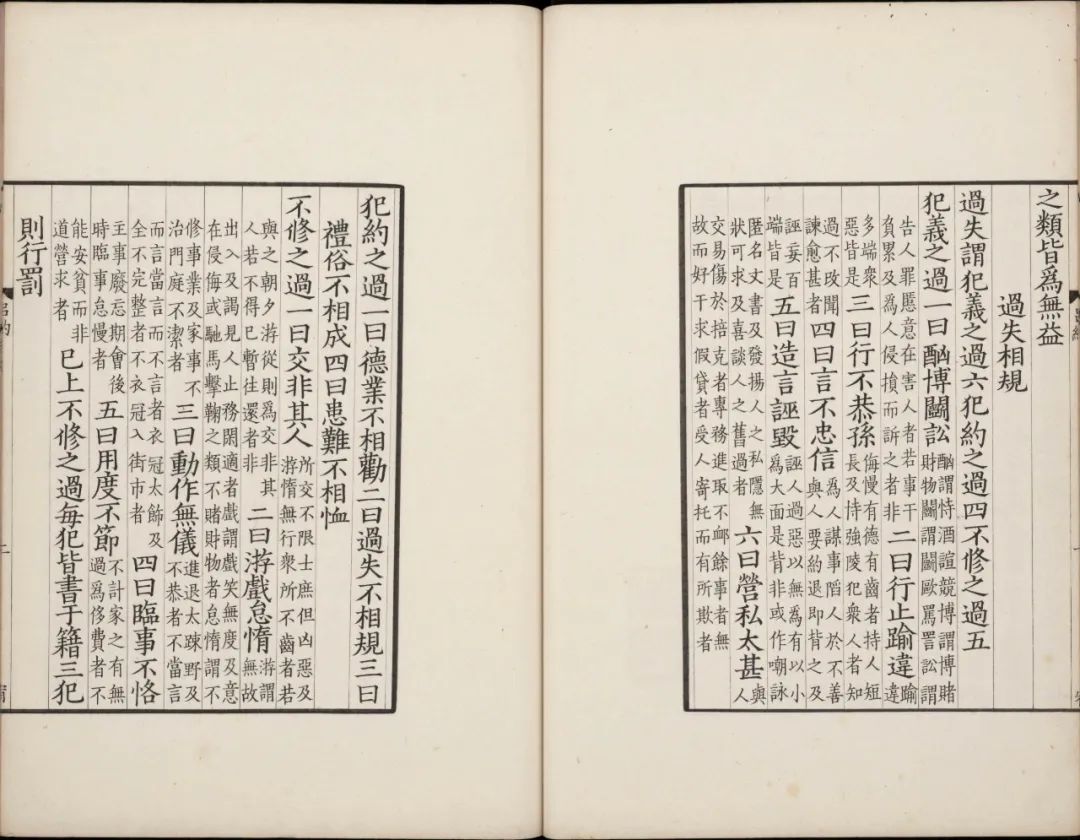 之類皆爲無益
過失相規
過失謂犯義之過六犯約之過四不修之過五
犯義之過一曰酗博鬭訟酗謂恃酒諠競博謂博賭財物鬭謂鬭歐罵詈訟謂
告人罪慝意在害人者若事干負累及爲人侵損而訴之者非二曰行止踰違踰違
多端衆惡皆是三曰行不恭孫侮慢有德有齒者持人短長及恃強陵犯衆人者知
過不改聞諫愈甚者四曰言不忠信爲人謀事陷人於不善與人要約退即背之及
誣妄百端皆是五曰造言誣毀誣人過惡以無為有以小爲大面是背非或作嘲詠
匿名文書及發揚人之私隱無狀可求及喜談人之舊過者六曰營私太甚與人
交易傷於掊克者專務進取不卹餘事者無故而好干求假貸者受人寄托而有所欺者
犯約之過一曰德業不相勸二曰過失不相規三曰
禮俗不相成四曰患難不相恤
不修之過一曰交非其人所交不限士庶但凶惡及游惰無行衆所不齒者若
與之朝夕游從則爲交非其人若不得已暫往還者非二曰游戲怠惰游謂無故
出入及謁見人止務閑適者戲謂戲笑無度及意在侵侮或馳馬擊鞠之類不賭財物者怠惰謂不
修事業及家事不治門庭不潔者三曰動作無儀進退太踈野及不恭者不當言
而言當言而不言者衣冠太飾及全不完整者不衣冠入街市者四曰臨事不恪
主事廢忘期會後時臨事怠慢者五曰用度不節不計家之有無過爲侈費者不
能安貧而非道營求者已上不修之過每犯皆書于籍三犯
則行罰